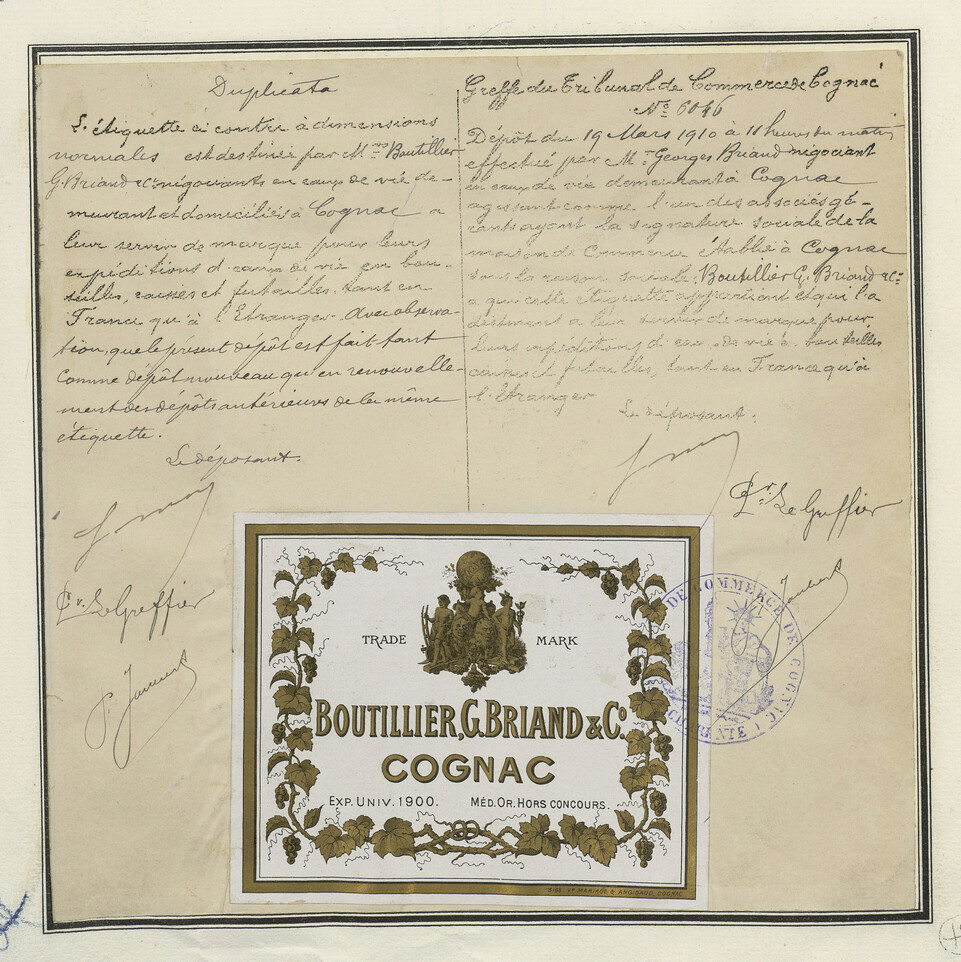 Duplicata
L'étiquette ci contre à dimensions
normales est destinée par Mrs Boutillier
G. Briand & Cie négociants en eaux de vie de-
meurant et domiciliés à Cognac a
leur servir de marque pour leurs
expéditions d'eaux de vie en bou-
teilles, caisses et futailles, tant en
France qu'à l'Etranger. Avec observa-
tion, que le présent dépôt est fait tant
comme dépôt nouveau qu'en renouvelle-
ment des dépôts antérieures de la même
étiquette.
Le déposant.
Pr. Le Greffier
Greffe du Tribunal de Commerce de Cognac
No 6046
Dépôt du 19 Mars 1910 à 11 heures du matin
effectué par Mr Georges Briand négociant
en eaux de vie demeurant à Cognac
agissant comme l'un des associés gé-
rants ayant la signature sociale de la
maison de Commerce établie à Cognac
sous la raison sociale Boutillier G. Briand & Cie
a qui cette étiquette appartient et qui la
destinent a leur servir de marque pour
leurs expéditions d'eau de vie en bouteilles
caisses et futailles, tant en France qu'à
l'étranger
Le déposant.
Pr. Le Greffier
TRADE MARK
BOUTILLIER, G. BRIAND & Co.
COGNAC
EXP. UNIV. 1900. MÉD. OR. HORS CONCOURS.
MARIAGE & ANGIBAUD, COGNAC
DE COMMERCE DE COGNAC
CHARENTE